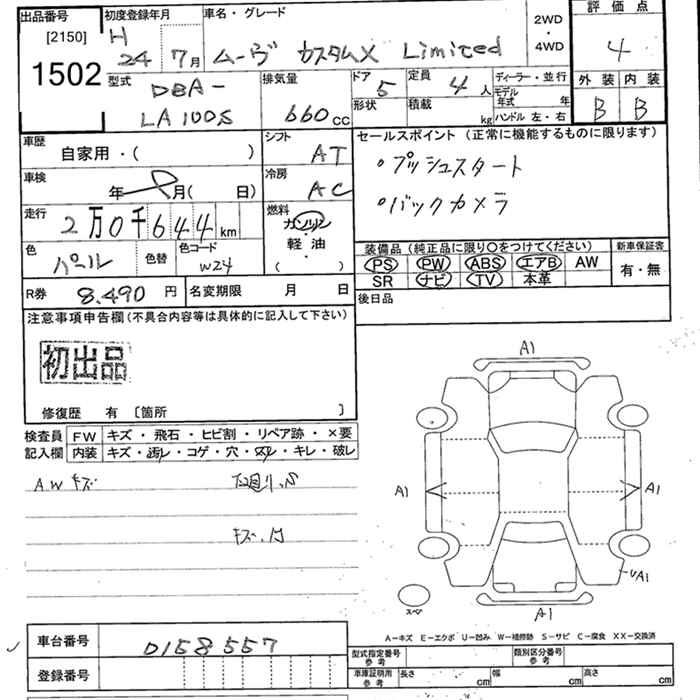 出品番号 初度登録年月 車名・グレード 2WD・4WD 評価点
[2150] H 24 7月 ムーヴ カスタムX Limited 4
1502 型式 DBA-LA100S 排気量 660cc ドア 5 定員 4人 ディーラー・並行 外装 内装
形状 積載 kg モデル年式 年 B B
ハンドル 左・右
車歴 自家用・( ) シフト AT セールスポイント (正常に機能するものに限ります)
車検 年 月( 日) 冷房 AC ・プッシュスタート
走行 2万0千644km 燃料 ガソリン・軽油・( ) ・バックカメラ
色 パール 色替 色コード W24 装備品 (純正品に限り○をつけてください) 新車保証書
PS PW ABS エアB AW 有・無
R券 8,490円 名変期限 月 日 SR ナビ TV 本革
注意事項申告欄(不具合内容等は具体的に記入して下さい) 後日品
初出品
修復歴 有 〔箇所 〕
検査員 FW キズ・飛石・ヒビ割・リペア跡・×要
記入欄 内装 キズ・汚レ・コゲ・穴・スレ・キレ・破レ
AWキズ
A1
A1 A1
UA1
スペア A1
A-キズ E-エクボ U-凹み W-補修跡 S-サビ C-腐食 XX-交換済
車台番号 0158557 型式指定番号 参考 類別区分番号 参考
登録番号 車庫証明用 参考 長さ cm 幅 cm 高さ cm